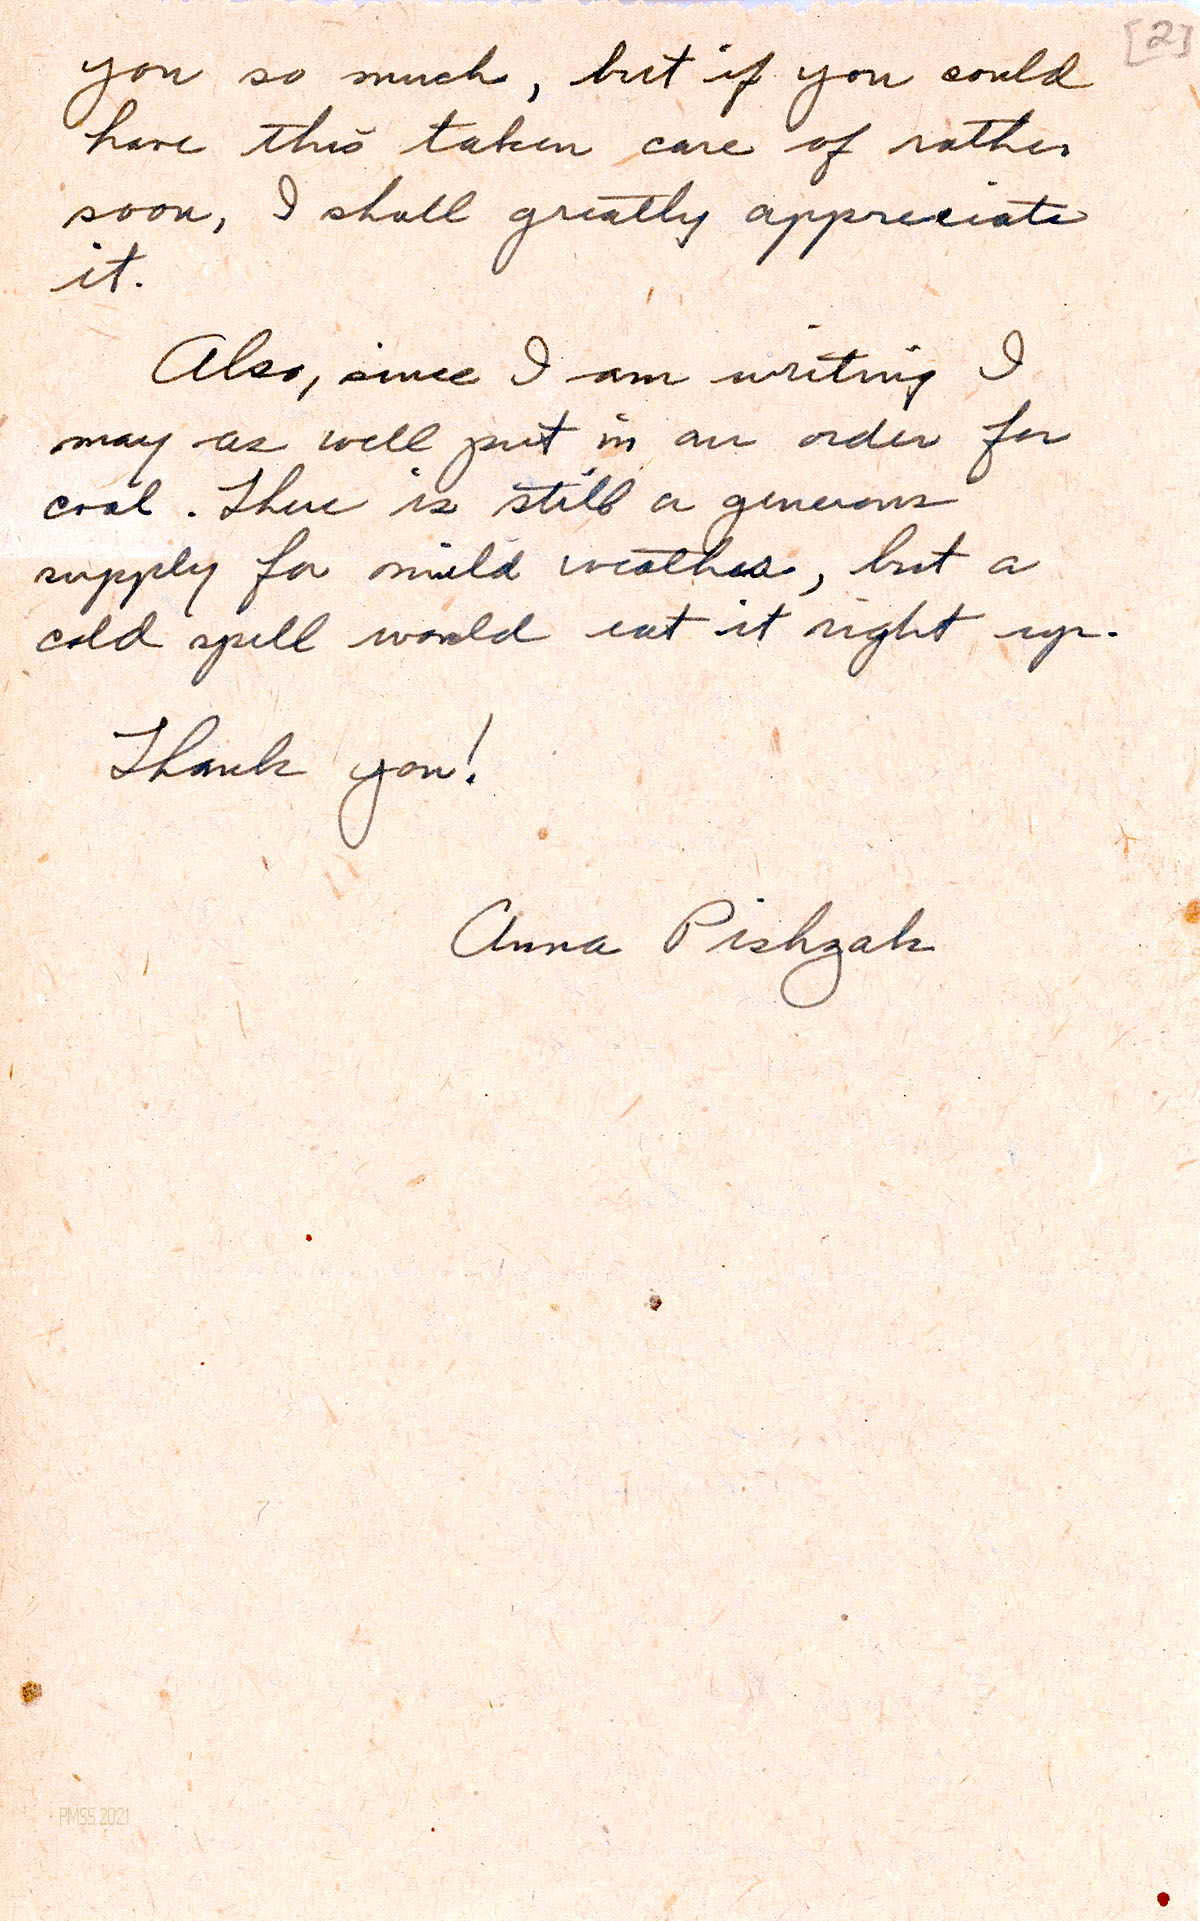 [2]
you so much, but if you could
have this taken care of rather
soon, I shall greatly appreciate
it.
Also, since I am writing I
may as well put in an order for
coal. There is still a generous
supply for mild weather, but a
cold spell would eat it right up.
Thank you!
Anna Pishzak
PMSS 2021